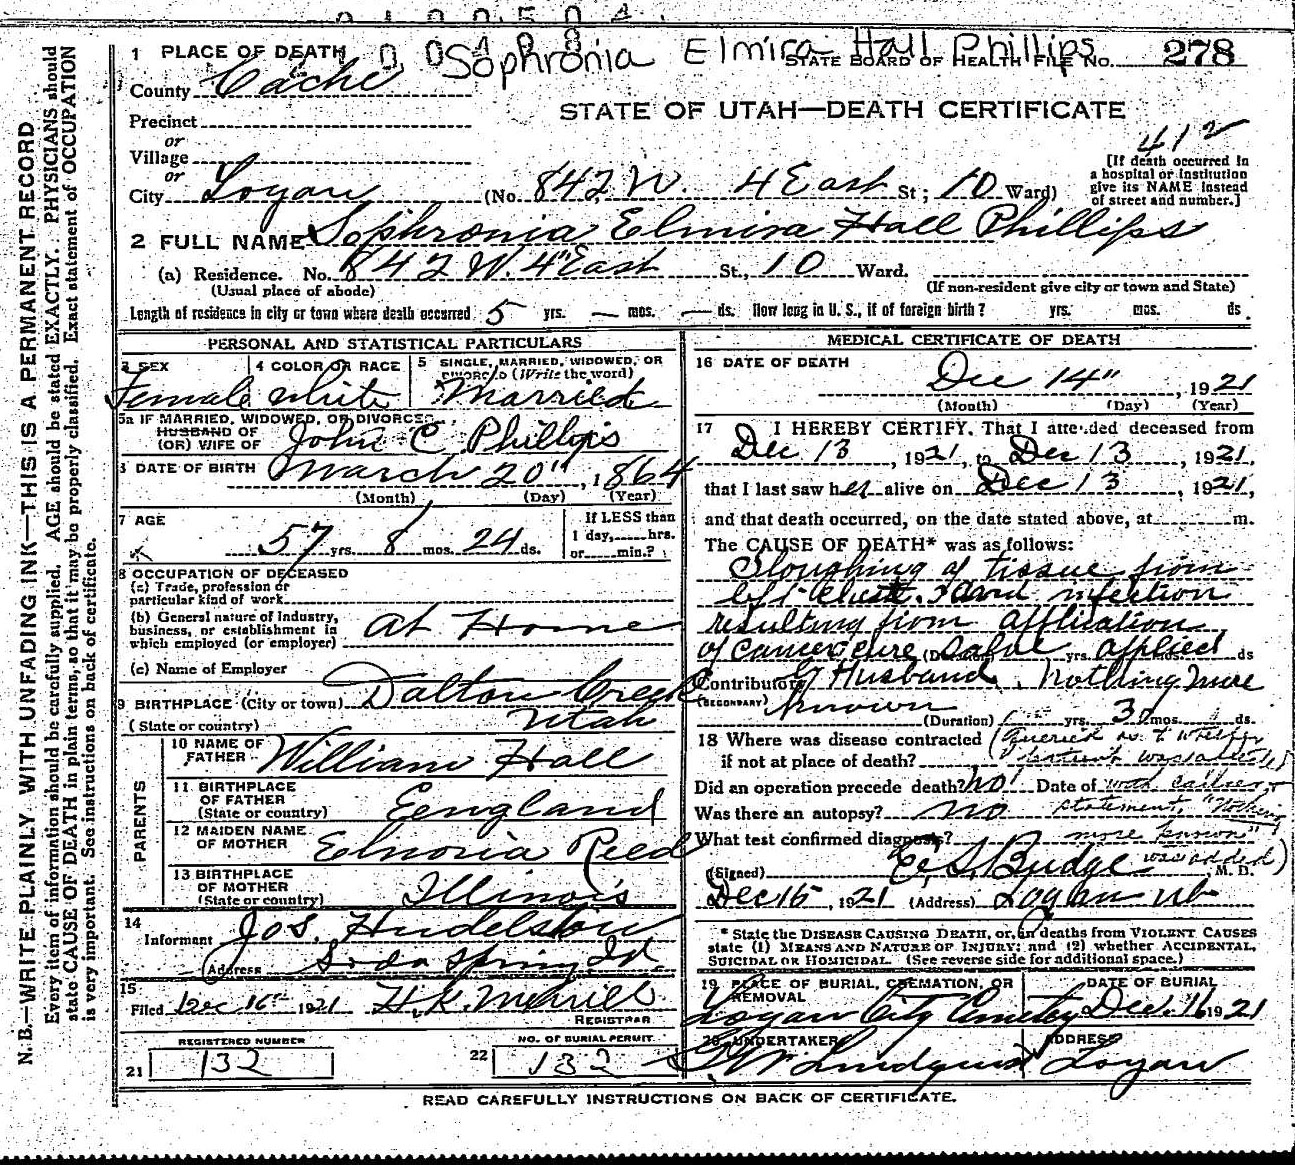 Sophronia Elmira Hall Phillips
1 PLACE OF DEATH
STATE BOARD OF HEALTH FILE NO. 278
County Cache
STATE OF UTAH—DEATH CERTIFICATE
Precinct
or
Village
or
412
[If death occurred in
a hospital or institution
give its NAME instead
of street and number.]
City Logan (No. 842 W. 4 East St; 10 Ward)
2 FULL NAME Sophronia Elmira Hall Phillips
(a) Residence. No. 842 W. 4 East St., 10 Ward.
(Usual place of abode) (If non-resident give city or town and State)
Length of residence in city or town where death occurred 5 yrs. — mos. — ds. How long in U. S., if of foreign birth? yrs. mos. ds.
PERSONAL AND STATISTICAL PARTICULARS
3 SEX Female
4 COLOR OR RACE white
5 SINGLE, MARRIED, WIDOWED, OR
DIVORCED (Write the word)
Married
5a IF MARRIED, WIDOWED, OR DIVORCED
HUSBAND OF
(OR) WIFE OF John C Phillips
6 DATE OF BIRTH March 20", 1864
(Month) (Day) (Year)
7 AGE
57 yrs. 8 mos. 24 ds.
If LESS than
1 day, hrs.
or min.?
8 OCCUPATION OF DECEASED
(a) Trade, profession or
particular kind of work
(b) General nature of industry,
business, or establishment in
which employed (or employer) at Home
(c) Name of Employer
9 BIRTHPLACE (City or town) Dalton Creek
(State or country) Utah
PARENTS
10 NAME OF
FATHER William Hall
11 BIRTHPLACE
OF FATHER
(State or country) Eengland
12 MAIDEN NAME
OF MOTHER Elnoria Reed
13 BIRTHPLACE
OF MOTHER
(State or country) Illinois
14
Informant Jos. Hudelston
(Address Soda Spring Id.
15
Filed Dec 16th 1921 H. K. Merrill
REGISTRAR
REGISTERED NUMBER
21 132
NO. OF BURIAL PERMIT
22 132
MEDICAL CERTIFICATE OF DEATH
16 DATE OF DEATH
Dec 14", 1921
(Month) (Day) (Year)
17 I HEREBY CERTIFY, That I attended deceased from
Dec 13, 1921, to Dec 13, 1921,
that I last saw her alive on Dec 13, 1921,
and that death occurred, on the date stated above, at m.
The CAUSE OF DEATH* was as follows:
Sloughing of tissue from
left chest. and infection
resulting from application
of cancer cure salve applied
(Duration) yrs. mos. ds
Contributory by Husband. Nothing more
(SECONDARY) known
(Duration) yrs. 3 mos. ds.
18 Where was disease contracted
if not at place of death?
(Queried as to whether
patient was
Did an operation precede death? no Date of
Was there an autopsy? no
statement, "Nothing
What test confirmed diagnosis?
more known"
was added)
(Signed) S. Budge M. D.
Dec 15, 1921 (Address) Logan Ut
* State the DISEASE CAUSING DEATH, or, in deaths from VIOLENT CAUSES
state (1) MEANS AND NATURE OF INJURY; and (2) whether ACCIDENTAL,
SUICIDAL OR HOMICIDAL. (See reverse side for additional space.)
19 PLACE OF BURIAL, CREMATION, OR
REMOVAL
Logan City Cemetery
DATE OF BURIAL
Dec. 16 1921
20 UNDERTAKER
Lundquist
ADDRESS
Logan
READ CAREFULLY INSTRUCTIONS ON BACK OF CERTIFICATE.
N. B.—WRITE PLAINLY WITH UNFADING INK—THIS IS A PERMANENT RECORD
Every item of information should be carefully supplied. AGE should be stated EXACTLY. PHYSICIANS should
state CAUSE OF DEATH in plain terms, so that it may be properly classified. Exact statement of OCCUPATION
is very important. See instructions on back of certificate.